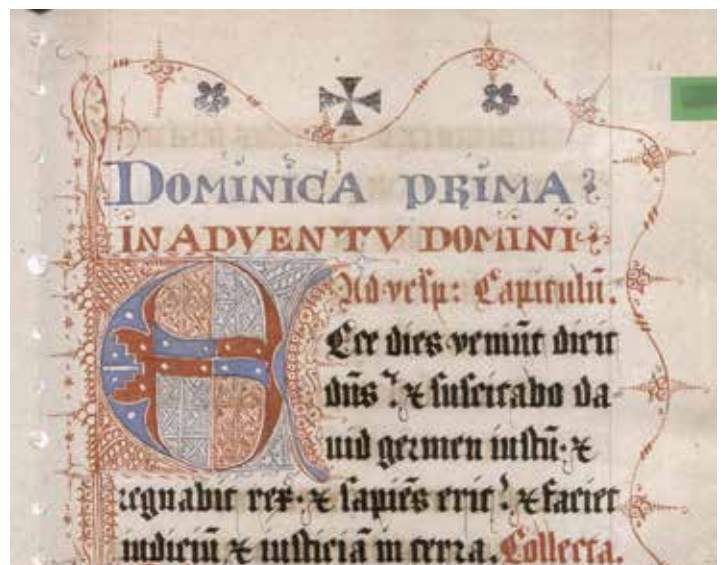 DOMINICA PRIMA
IN ADVENTV DOMINI
Ad vesp: Capitulū.
Ecce dies veniūt dicit
dn̄s ⁊ suscitabo da
uid germen iustū· ⁊
regnabit rex· ⁊ sapiēs erit ⁊ faciet
iudiciū ⁊ iusticiā in terra. Collecta.